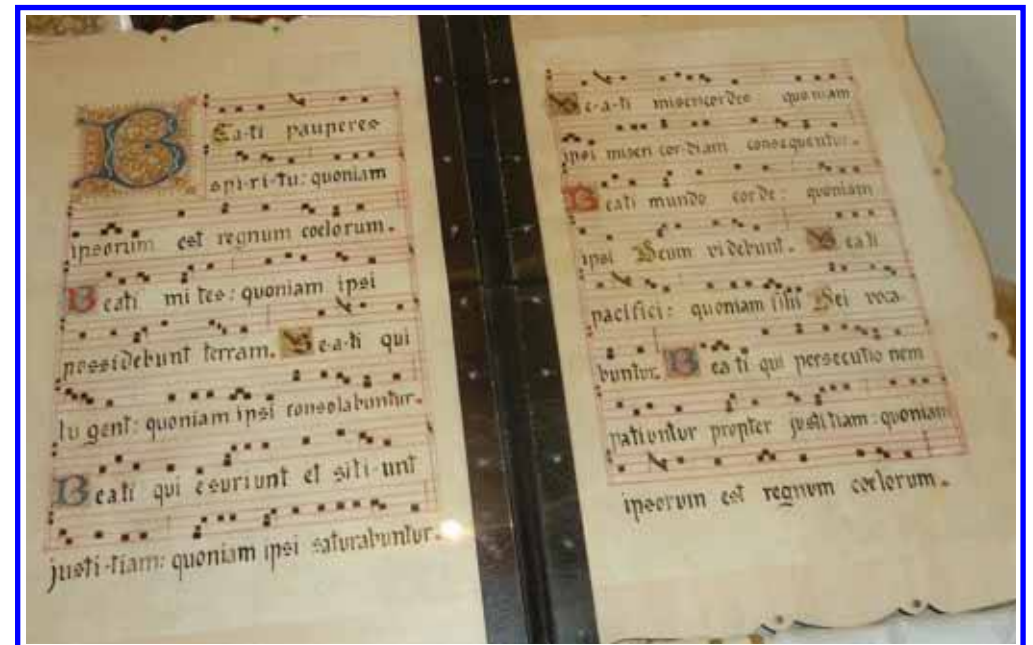 Bea-ti pauperes
spi-ri-tu: quoniam
ipsorum est regnum coelorum.
Beati mi tes: quoniam ipsi
possidebunt terram. Be-a-ti qui
lu gent: quoniam ipsi consolabuntur.
Beati qui esuriunt et siti-unt
justi-tiam: quoniam ipsi saturabuntur.
Be-a-ti misericordes quoniam
ipsi miseri cor-diam consequentur.
Beati mundo corde: quoniam
ipsi Deum videbunt. Beati
pacifici: quoniam filii Dei voca-
buntur. Bea ti qui persecutio nem
patiuntur propter justi tiam: quoniam
ipsorum est regnum coelorum.